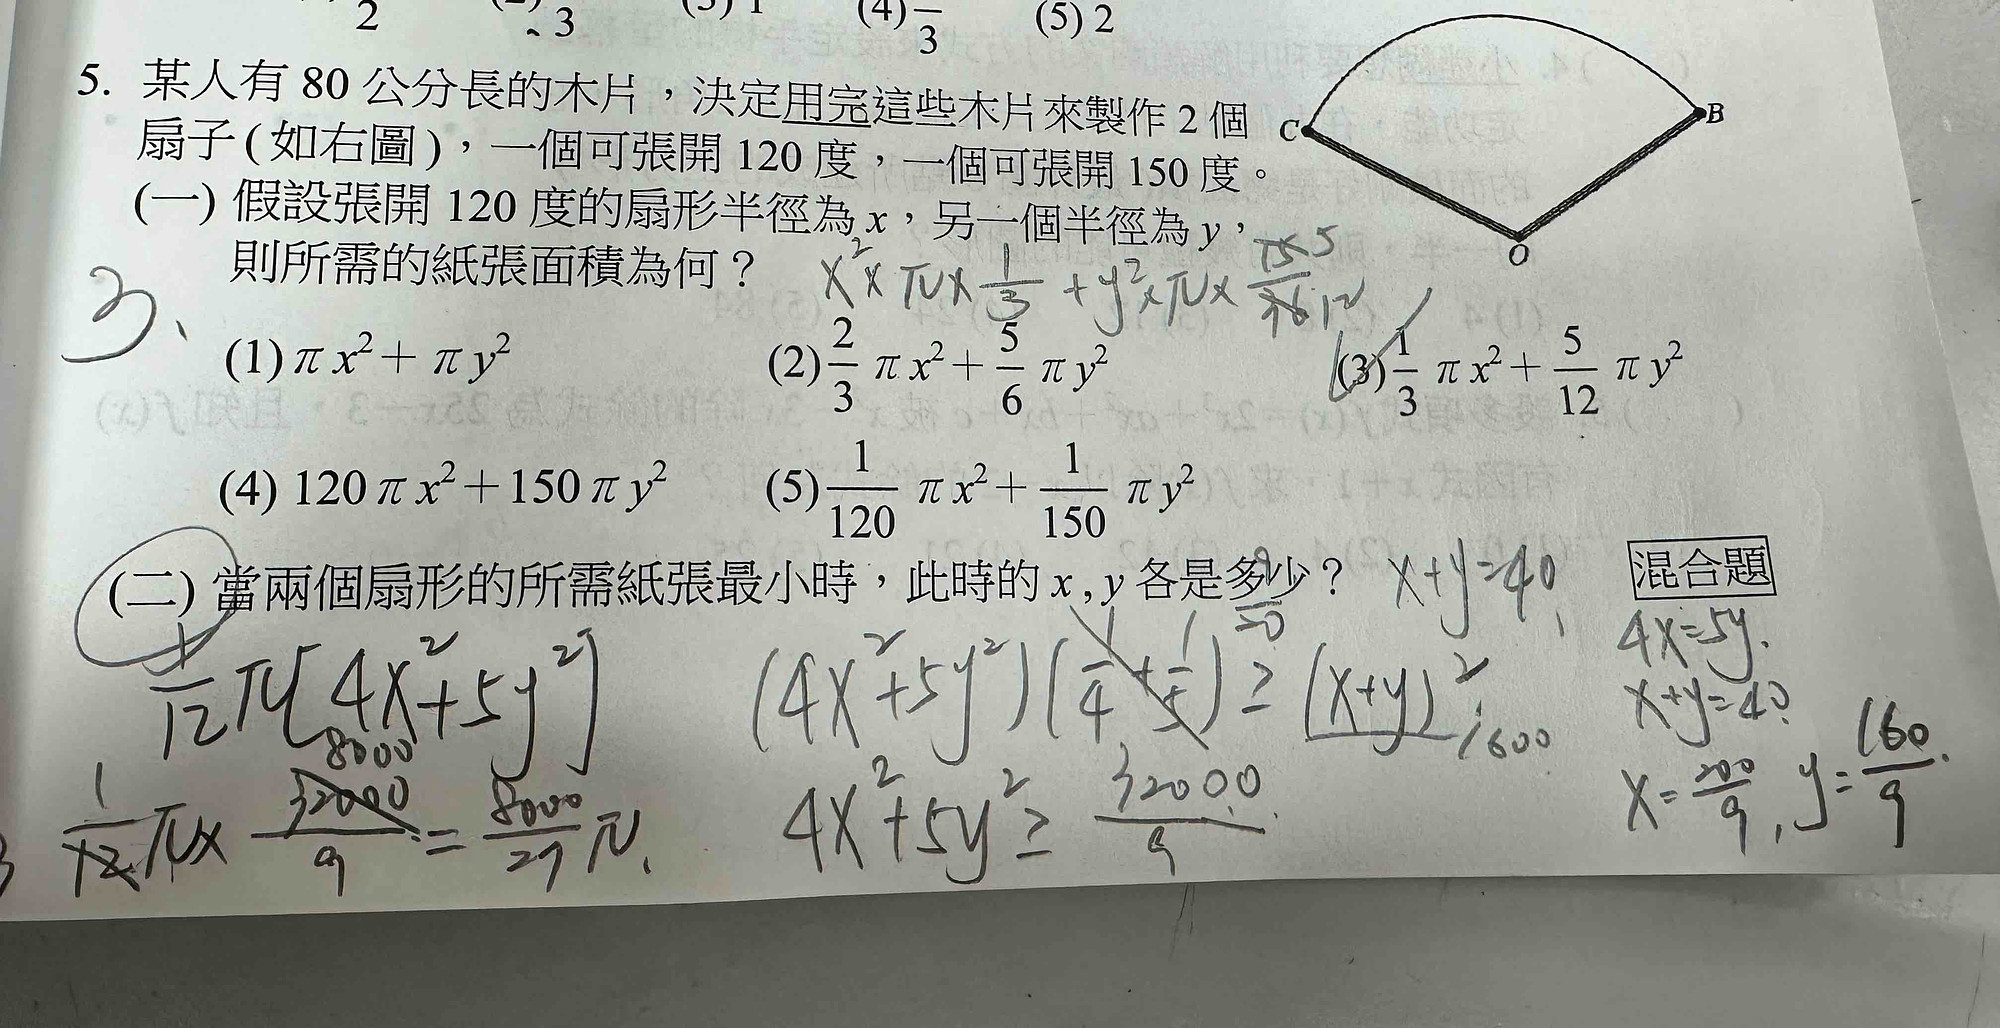 2 3 (3) 1 (4) 3 (5) 2
5. 某人有 80 公分長的木片，決定用完這些木片來製作 2 個
扇子(如右圖)，一個可張開 120 度，一個可張開 150 度。
C B O
(一) 假設張開 120 度的扇形半徑為 x，另一個半徑為 y，
則所需的紙張面積為何？
x² × π × 1/3 + y² × π ×
3、
(1) π x² + π y²
(2) 2/3 π x² + 5/6 π y²
(3) 1/3 π x² + 5/12 π y²
(4) 120 π x² + 150 π y²
(5) 1/120 π x² + 1/150 π y²
(二) 當兩個扇形的所需紙張最小時，此時的 x , y 各是多少？
x+y=40
混合題
1/12 π[4x²+5y²]
(4x²+5y²)(1/4+1/5) ≥ (x+y)²
9/20
1600
4x=5y.
x+y=40
x=200/9, y=160/9.
1/12 π× 32000/9 = 8000/27 π.
8000
4x²+5y² ≥ 32000/9